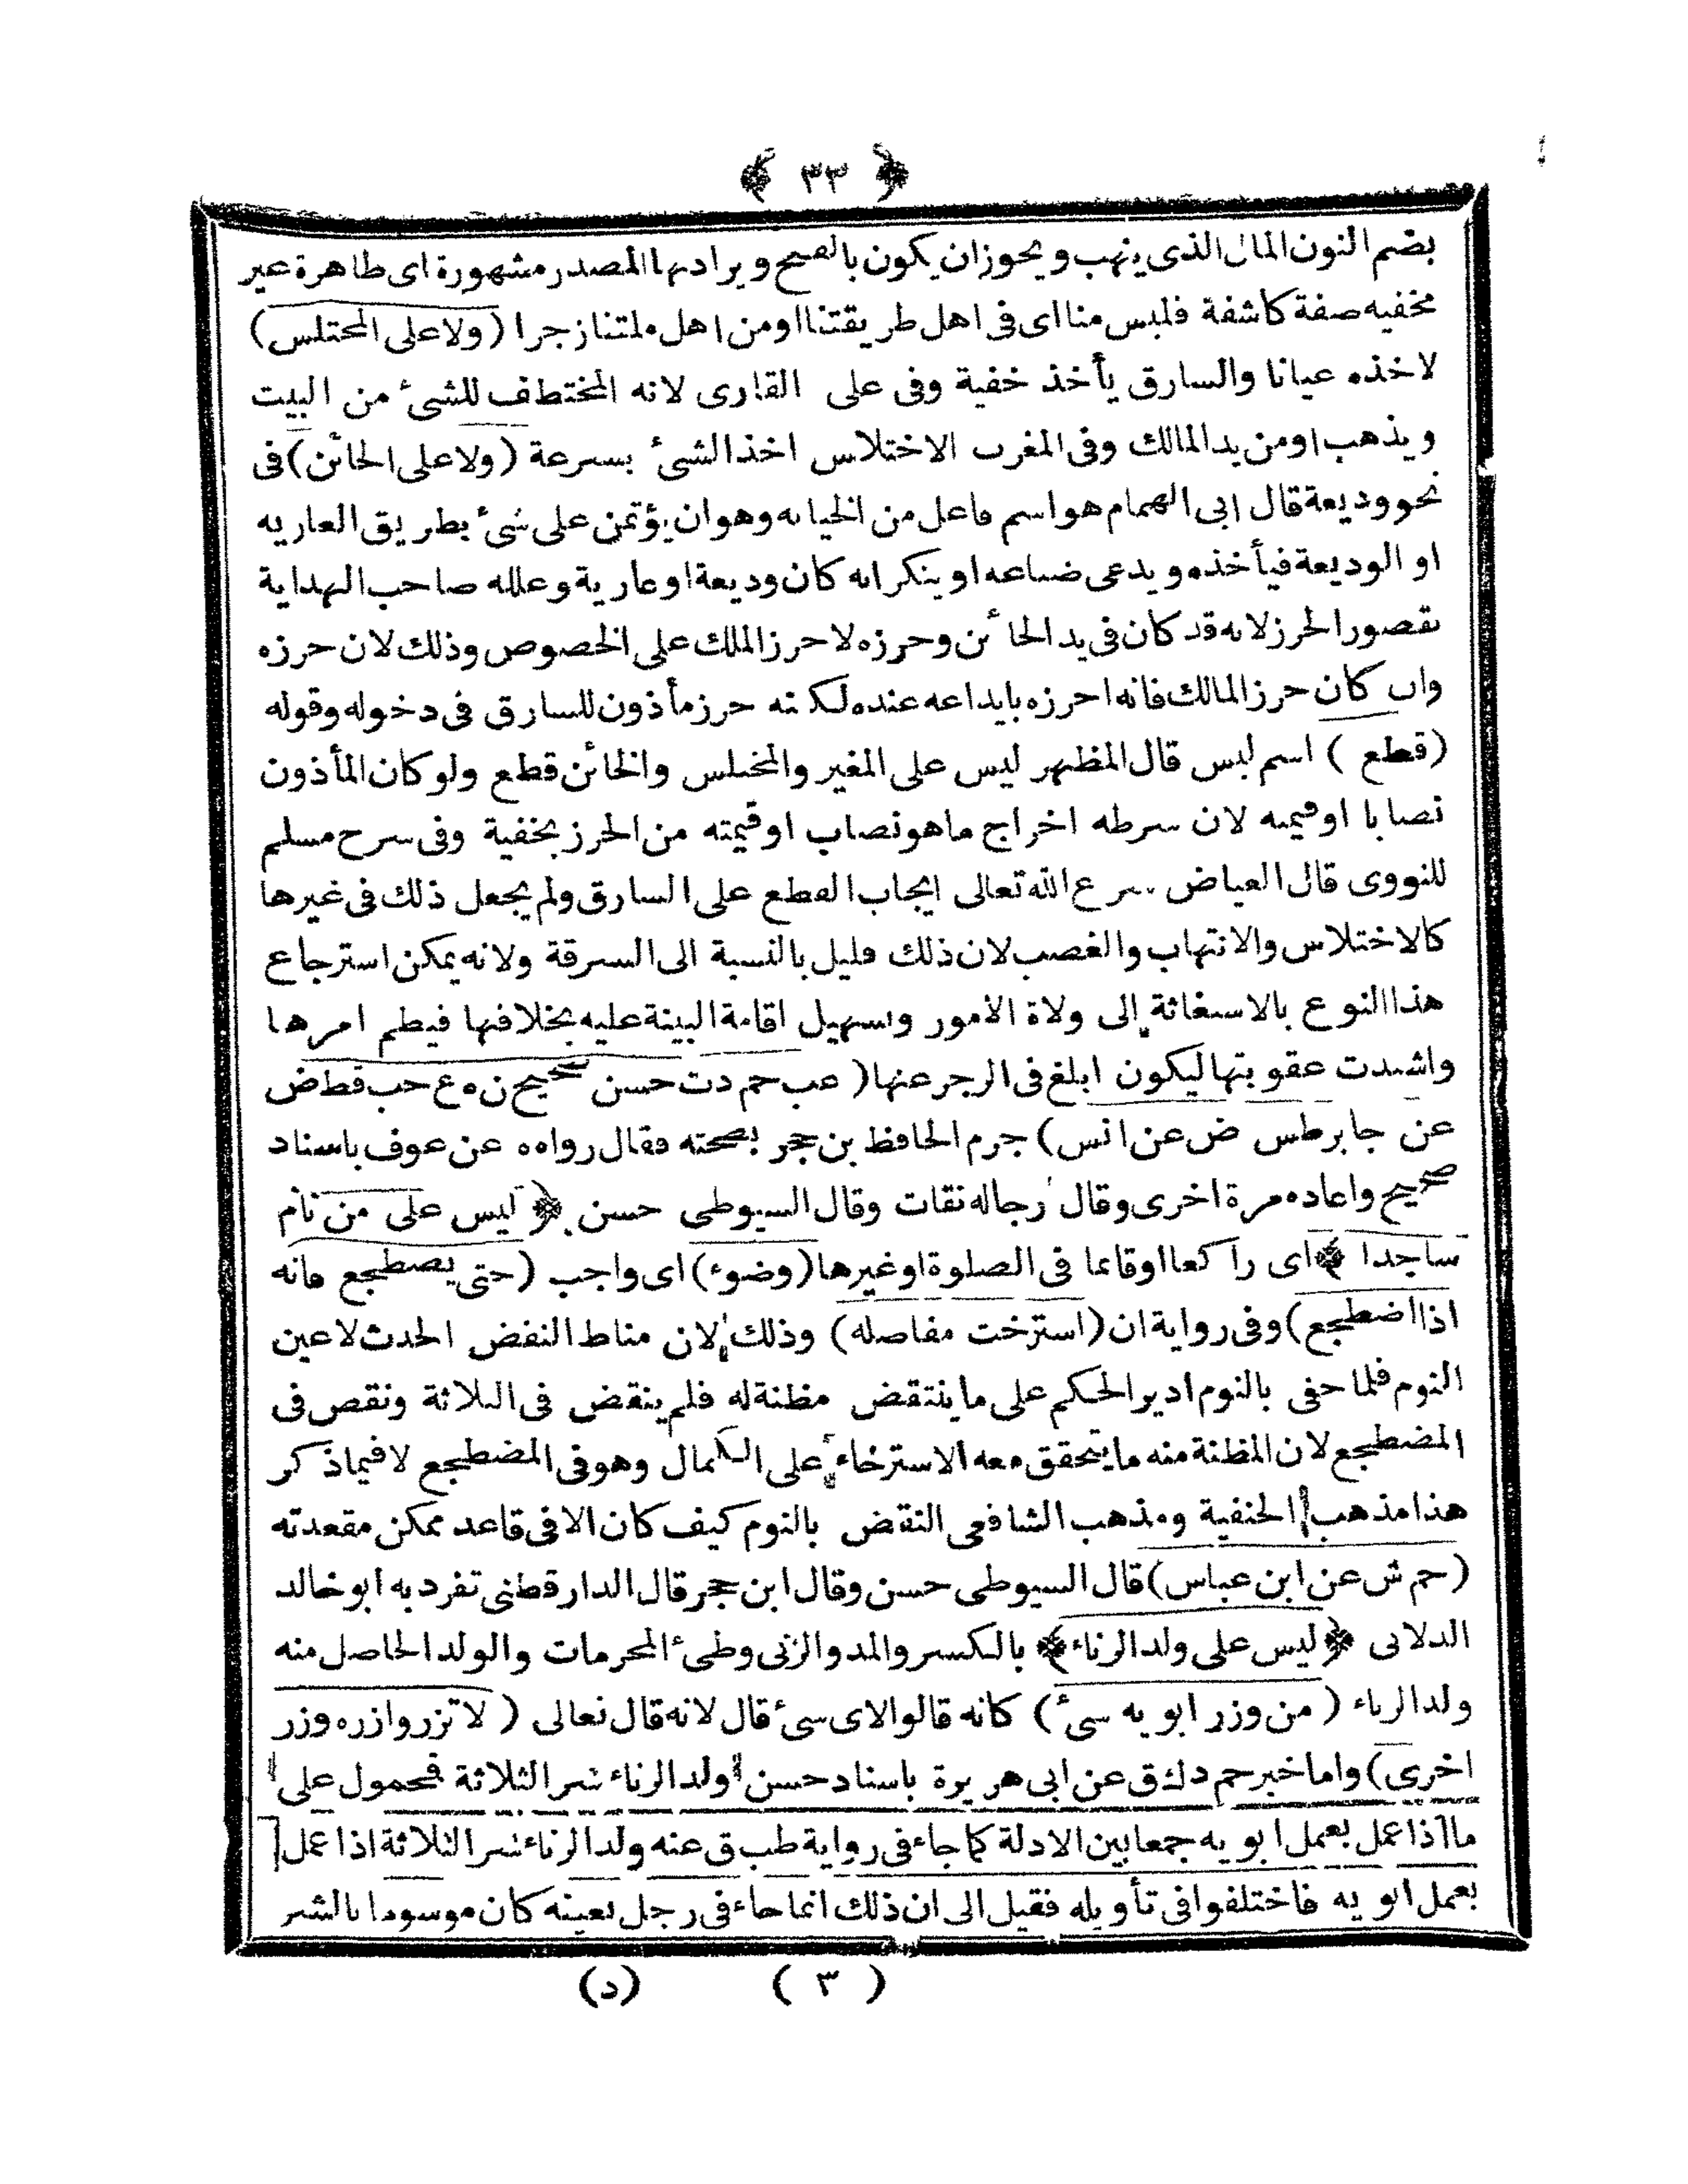 ﴿ ٣٣ ﴾
بضم النون المال الذى ينهب ويجوز ان يكون بالفتح ويراد بها المصدر مشهورة اى ظاهرة غير
مخفيه صفة كاشفة فليس منا اى فى اهل طريقتنا او من اهل ملتنا زجرا (ولا على المختلس)
لاخذه عيانا والسارق يأخذ خفية وفى على القارى لانه المختطف للشىء من البيت
ويذهب او من يد المالك وفى المغرب الاختلاس اخذ الشىء بسرعة (ولا على الخائن) فى
نحو وديعة قال ابى الهمام هو اسم فاعل من الخيانه وهو ان يؤتمن على شىء بطريق العاريه
او الوديعة فيأخذه ويدعى ضياعه او ينكر انه كان وديعة او عارية وعلله صاحب الهداية
بقصور الحرز لانه قد كان فى يد الخائن وحرزه لا حرز الملك على الخصوص وذلك لان حرزه
وان كان حرز المالك فانه احرزه بايداعه عنده لكنه حرز مأذون للسارق فى دخوله وقوله
(قطع) اسم ليس قال المظهر ليس على المغير والمختلس والخائن قطع ولو كان المأذون
نصابا او قيمته لان شرطه اخراج ما هو نصاب او قيمته من الحرز بخفية وفى شرح مسلم
للنووى قال العياض شرع الله تعالى ايجاب القطع على السارق ولم يجعل ذلك فى غيرها
كالاختلاس والانتهاب والغصب لان ذلك قليل بالنسبة الى السرقة ولانه يمكن استرجاع
هذا النوع بالاستغاثة الى ولاة الامور وتسهيل اقامة البينة عليه بخلافها فيظم امرها
واشدت عقوبتها ليكون ابلغ فى الزجر عنها (عب حم د ت حسن صحيح ن ه ع حب قط ض
عن جابر طس ض عن انس) جزم الحافظ بن حجر بصحته فقال رواه ه عن عوف باسناد
صحيح واعاده مرة اخرى وقال رجاله ثقات وقال السيوطى حسن ﴿ ليس على من نام
ساجدا ﴾ اى راكعا او قائما فى الصلوة او غيرها (وضوء) اى واجب (حتى يضطجع فانه
اذا اضطجع) وفى رواية ان (استرخت مفاصله) وذلك لان مناط النقض الحدث لا عين
النوم فلما خفى بالنوم ادير الحكم على ما ينتقض مظنة له فلم ينقض فى الثلاثة ونقض فى
المضطجع لان المظنة منه ما يتحقق معه الاسترخاء على الكمال وهو فى المضطجع لا فيما ذكر
هذا مذهب الحنفية ومذهب الشافعى النقض بالنوم كيف كان الا فى قاعد ممكن مقعدته
(حم ش عن ابن عباس) قال السيوطى حسن وقال ابن حجر قال الدارقطنى تفرد به ابو خالد
الدلانى ﴿ ليس على ولد الزناء ﴾ بالكسر والمد والزنى وطىء المحرمات والولد الحاصل منه
ولد الزناء (من وزر ابويه شىء) كانه قالوا لاى شىء قال لانه قال تعالى (لا تزر وازره وزر
اخرى) واما خبر حم د ك ق عن ابى هريرة باسناد حسن ولد الزناء شر الثلاثة فمحمول على
ما اذا عمل بعمل ابويه جمعا بين الادلة كما جاء فى رواية طب ق عنه ولد الزناء شر الثلاثة اذا عمل
بعمل ابويه فاختلفوا فى تأويله فقيل الى ان ذلك انما جاء فى رجل بعينه كان موسوما بالشر
( ٣ ) (د)